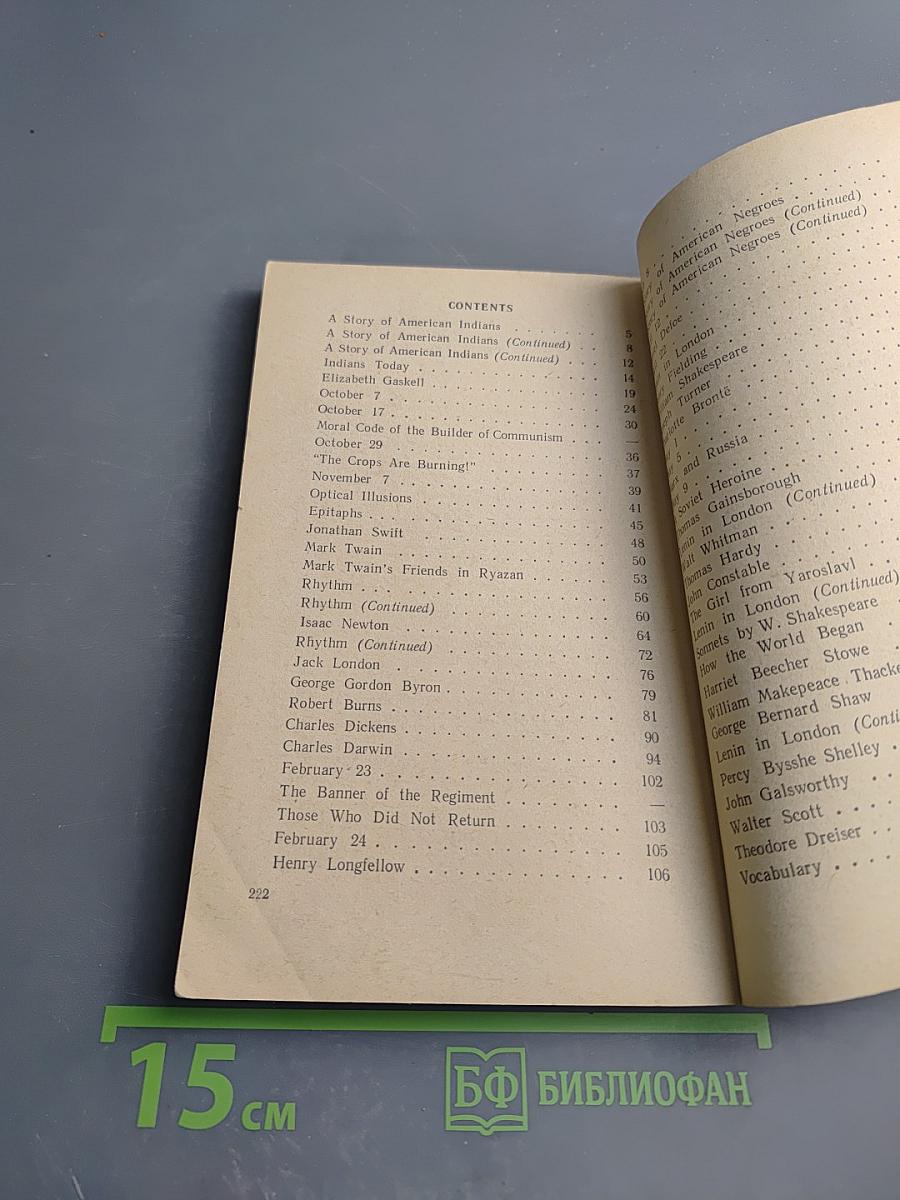 CONTENTS
A Story of American Indians . . . . . . . 5
A Story of American Indians (Continued) . . 8
A Story of American Indians (Continued) . . 12
Indians Today . . . . . . . . . . . . . 14
Elizabeth Gaskell . . . . . . . . . . . . 19
October 7 . . . . . . . . . . . . . . . 24
October 17 . . . . . . . . . . . . . . . 30
Moral Code of the Builder of Communism . . . —
October 29 . . . . . . . . . . . . . . . 36
"The Crops Are Burning!" . . . . . . . . . 37
November 7 . . . . . . . . . . . . . . . 39
Optical Illusions . . . . . . . . . . . . . 41
Epitaphs . . . . . . . . . . . . . . . . 45
Jonathan Swift . . . . . . . . . . . . . 48
Mark Twain . . . . . . . . . . . . . . . 50
Mark Twain's Friends in Ryazan . . . . . . . 53
Rhythm . . . . . . . . . . . . . . . . 56
Rhythm (Continued) . . . . . . . . . . . 60
Isaac Newton . . . . . . . . . . . . . . 64
Rhythm (Continued) . . . . . . . . . . . 72
Jack London . . . . . . . . . . . . . . 76
George Gordon Byron . . . . . . . . . . . 79
Robert Burns . . . . . . . . . . . . . . 81
Charles Dickens . . . . . . . . . . . . . 90
Charles Darwin . . . . . . . . . . . . . 94
February 23 . . . . . . . . . . . . . . 102
The Banner of the Regiment . . . . . . . . —
Those Who Did Not Return . . . . . . . . 103
February 24 . . . . . . . . . . . . . . 105
Henry Longfellow . . . . . . . . . . . . . 106
222
of American Negroes
of American Negroes (Continued)
of American Negroes (Continued)
12
22
in London
Fielding
Shakespeare
Turner
Brontë
1
5
and Russia
9
Soviet Heroine
Thomas Gainsborough
Lenin in London (Continued)
Walt Whitman
Thomas Hardy
John Constable
The Girl from Yaroslavl
Lenin in London (Continued)
Sonnets by W. Shakespeare
How the World Began
Harriet Beecher Stowe
William Makepeace Thacke
George Bernard Shaw
Lenin in London (Conti
Percy Bysshe Shelley
John Galsworthy
Walter Scott
Theodore Dreiser
Vocabulary
15 см
БФ БИБЛИОФАН